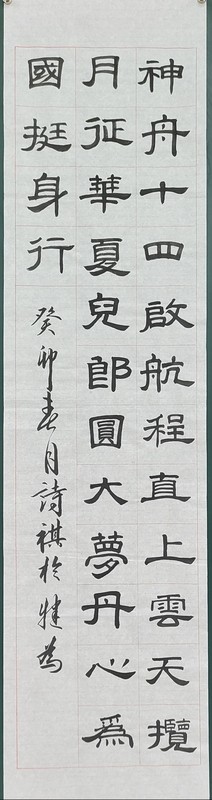 神舟十四啟航程直上雲天攬
月征華夏兒郎圓大夢丹心為
國挺身行
癸卯春月詩祺於犍為